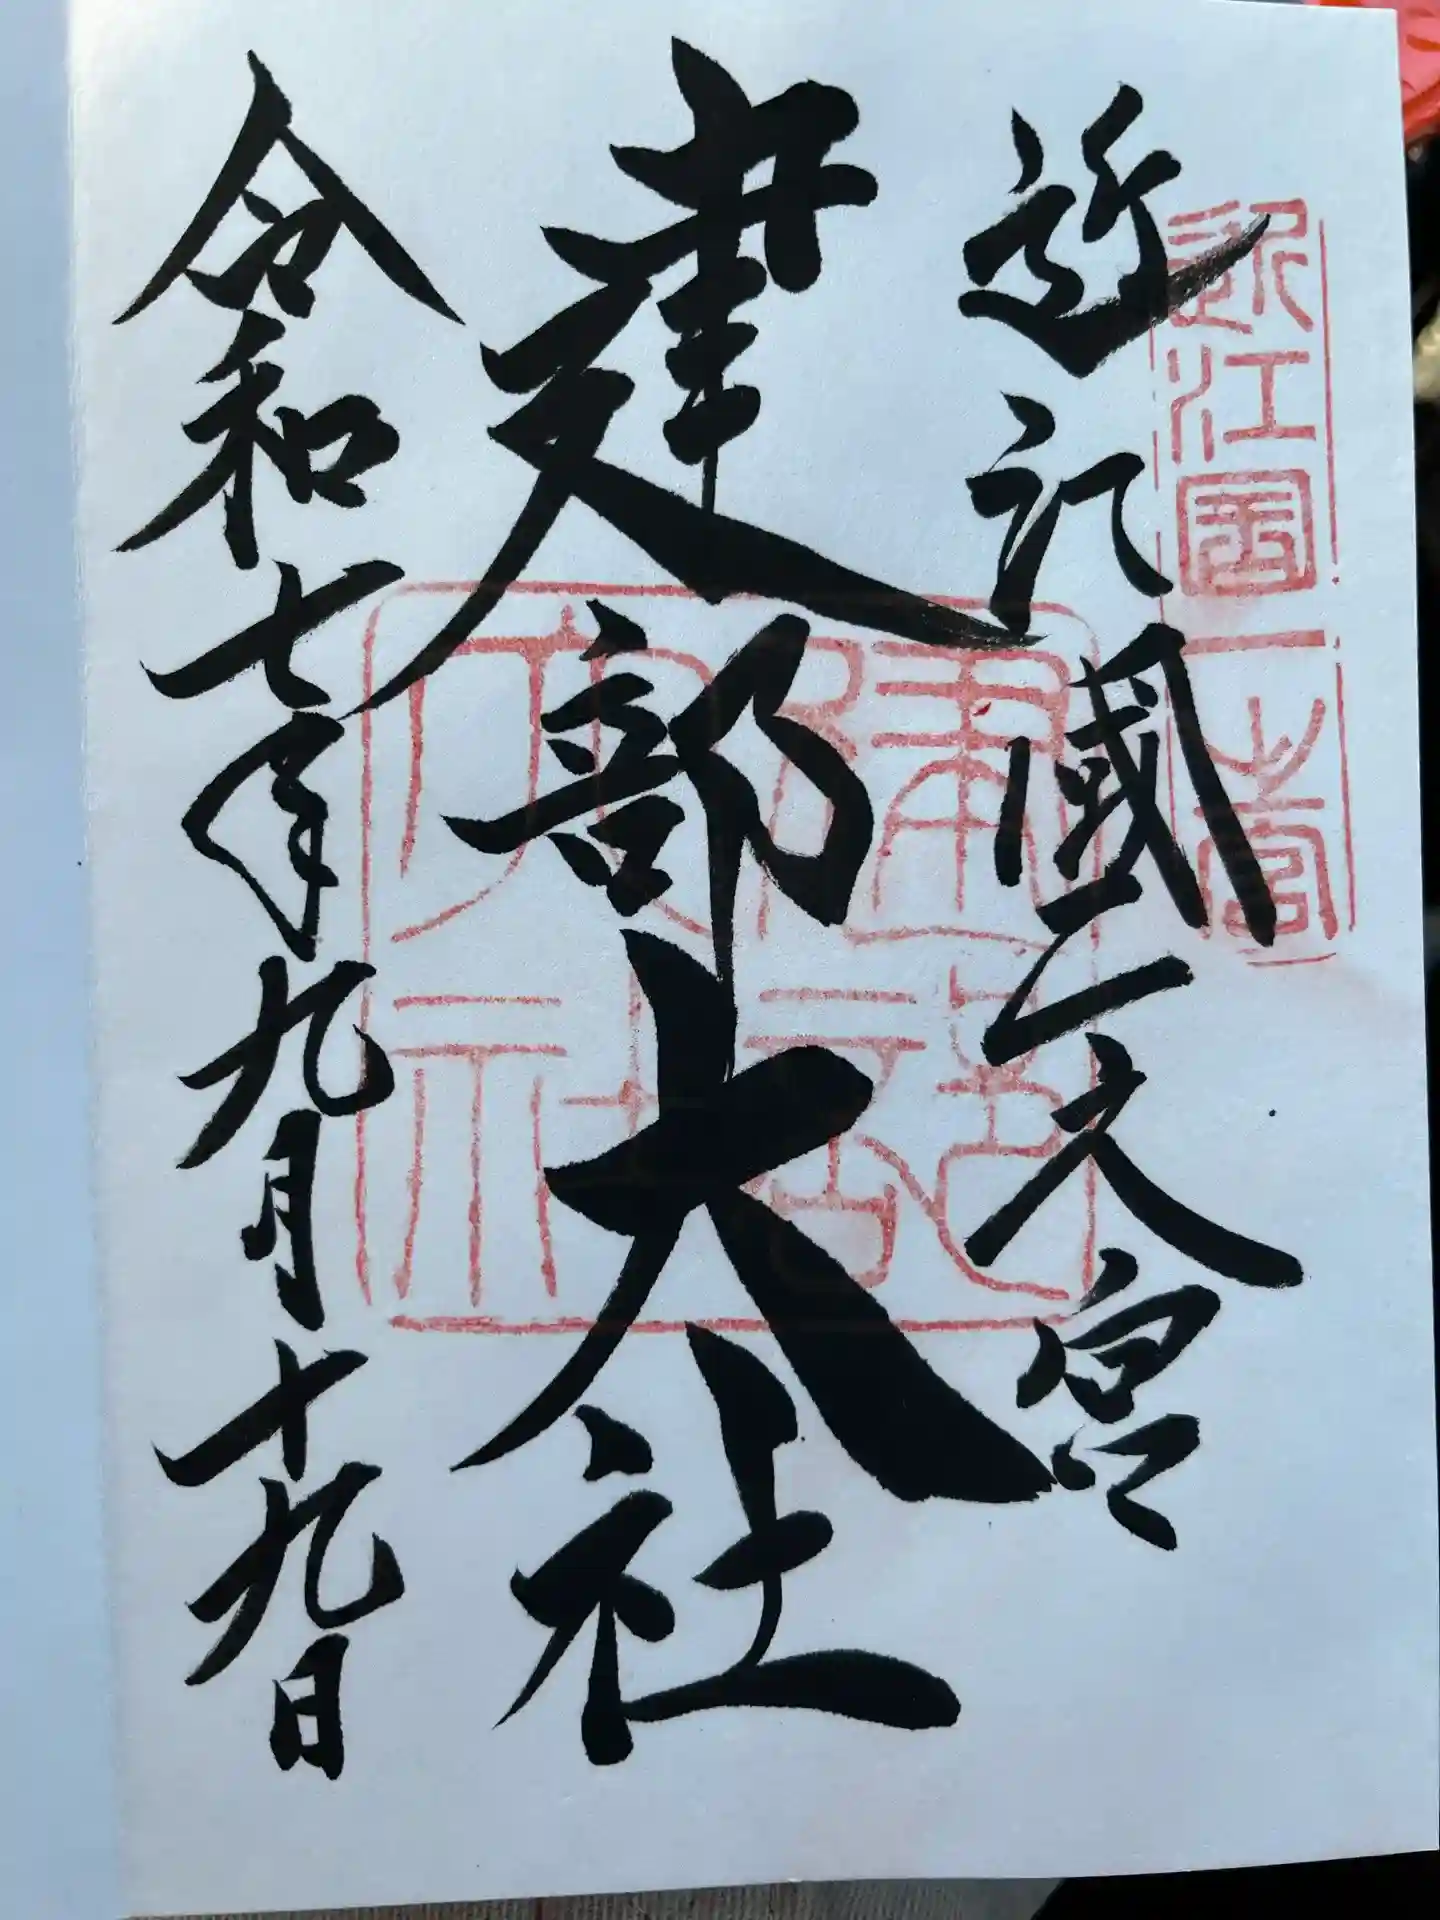 近江国一之宮
近江國一之宮
建部大社
建部大社
令和七年九月十九日